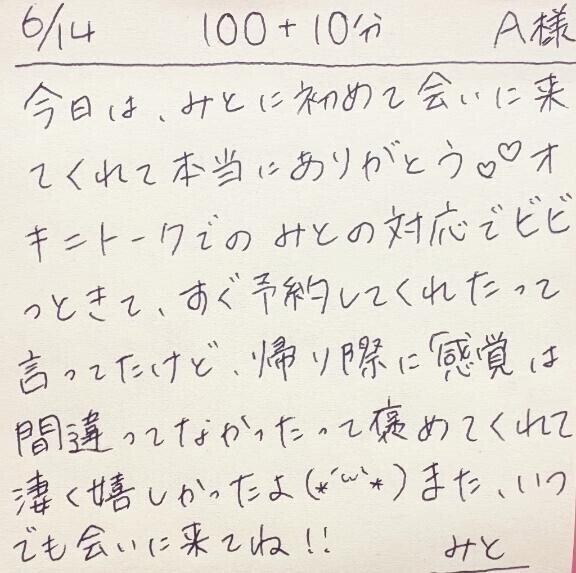 6/14 100+10分 A様
今日は、みとに初めて会いに来
てくれて本当にありがとう♡♡オ
キニトークでのみとの対応でビビ
っときて、すぐ予約してくれたって
言ってたけど、帰り際に「感覚は
間違ってなかったって褒めてくれて
凄く嬉しかったよ(*´ω`*)また、いつ
でも会いに来てね!!
みと